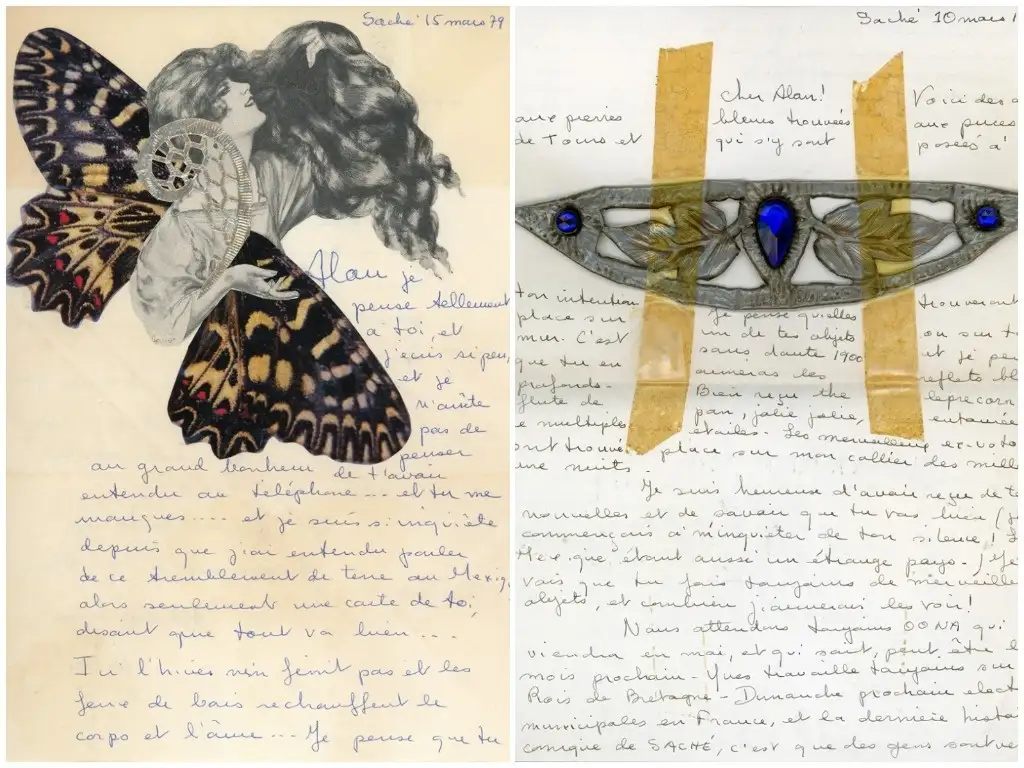 Saché 15 mars 79
Alan je
pense tellement
à toi, et
j'écris si peu,
et je
n'arrête
pas de
penser
au grand bonheur de t'avoir
entendu au téléphone... et tu me
manques.... et je suis si inquiète
depuis que j'ai entendu parler
de ce tremblement de terre au Mexiq
alors seulement une carte de toi,
disant que tout va bien...
Ici l'hiver n'en finit pas et les
feux de bois rechauffent le
corps et l'âme... Je pense que tu
Saché 10 mars 1
Cher Alan! Voici des
aux pierres bleues trouvées aux puces
de Tours et qui s'y sont posées à
ton intention Je pense qu'elles trouveront
place sur un de tes objets ou sur t
mur. C'est sans doute 1900 et je pen
que tu en aimeras les reflets bl
profonds. Bien reçu the leprecorn
flute de pan, jolie jolie, entourée
e multiples étoiles. Les merveilleux ex-voto
ont trouvé place sur mon collier des mille
une nuits.
Je suis heureuse d'avoir reçu de te
nouvelles et de savoir que tu vas bien (je
commençais à m'inquiéter de ton silence! L
Mexique étant aussi un étrange pays.) Je
vois que tu fais toujours de merveille
objets, et combien j'aimerais les voir!
Nous attendons toujours OONA qui
viendra en mai, et qui sait, peut être l
mois prochain - Yves travaille toujours sur
Rois de Bretagne - Dimanche prochain elect
municipales en France, et la dernière histoi
comique de SACHÉ, c'est que des gens sont ve